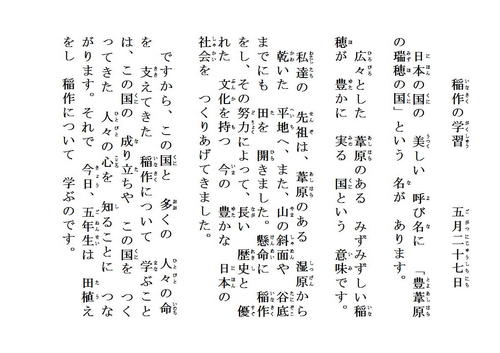 稲作の学習　五月二十七日
日本の国の 美しい 呼び名に 「豊葦原
の瑞穂の国」という 名が あります。
広々とした 葦原のある みずみずしい稲
穂が 豊かに 実る 国という 意味です。
私達の 先祖は、葦原のある 湿原から
乾いた 平地へ、また、山の斜面や 谷底
までにも 田を 開きました。懸命に 稲作
をし、その努力によって、長い 歴史と 優
れた 文化を持つ 今の 豊かな 日本の
社会を つくりあげてきました。
ですから、この国と 多くの 人々の命
を 支えてきた 稲作について 学ぶこと
は、この国の 成り立ちや この国を つく
ってきた 人々の心を 知ることに つな
がります。それで 今日、五年生は 田植え
をし 稲作について 学ぶのです。